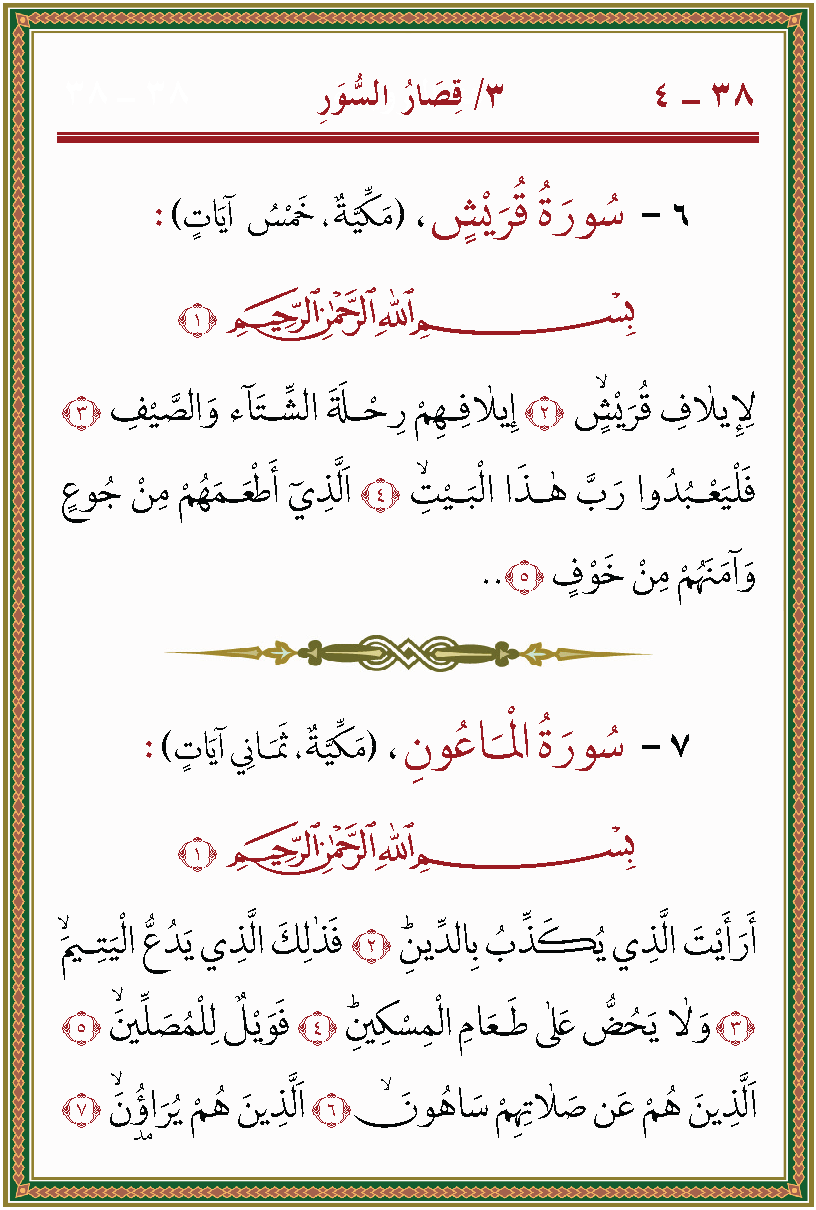 ٣٨ ـ ٤
٣/ قِصَارُ السُّوَرِ
٦ - سُورَةُ قُرَيْشٍ ، (مَكِّيَّةٌ ، خَمْسُ آيَاتٍ) :
بِسْمِ اللهِ الرَّحْمٰنِ الرَّحِيمِ ﴿١﴾
لِإِيلَافِ قُرَيْشٍۙ ﴿٢﴾ إِيلَافِهِمْ رِحْلَةَ الشِّتَآءِ وَالصَّيْفِ ﴿٣﴾
فَلْيَعْبُدُوا رَبَّ هٰذَا الْبَيْتِۙ ﴿٤﴾ اَلَّذِيٓ أَطْعَمَهُمْ مِنْ جُوعٍ
وَآمَنَهُمْ مِنْ خَوْفٍ ﴿٥﴾..
٧ - سُورَةُ الْمَاعُونِ ، (مَكِّيَّةٌ ، ثَمَانِي آيَاتٍ) :
بِسْمِ اللهِ الرَّحْمٰنِ الرَّحِيمِ ﴿١﴾
أَرَأَيْتَ الَّذِي يُكَذِّبُ بِالدِّينِۜ ﴿٢﴾ فَذٰلِكَ الَّذِي يَدُعُّ الْيَتِيمَۙ
﴿٣﴾ وَلَا يَحُضُّ عَلٰى طَعَامِ الْمِسْكِينِۜ ﴿٤﴾ فَوَيْلٌ لِلْمُصَلِّينَۙ ﴿٥﴾
اَلَّذِينَ هُمْ عَن صَلَاتِهِمْ سَاهُونَۙ ﴿٦﴾ اَلَّذِينَ هُمْ يُرَاؤُنَۙ ﴿٧﴾
مد